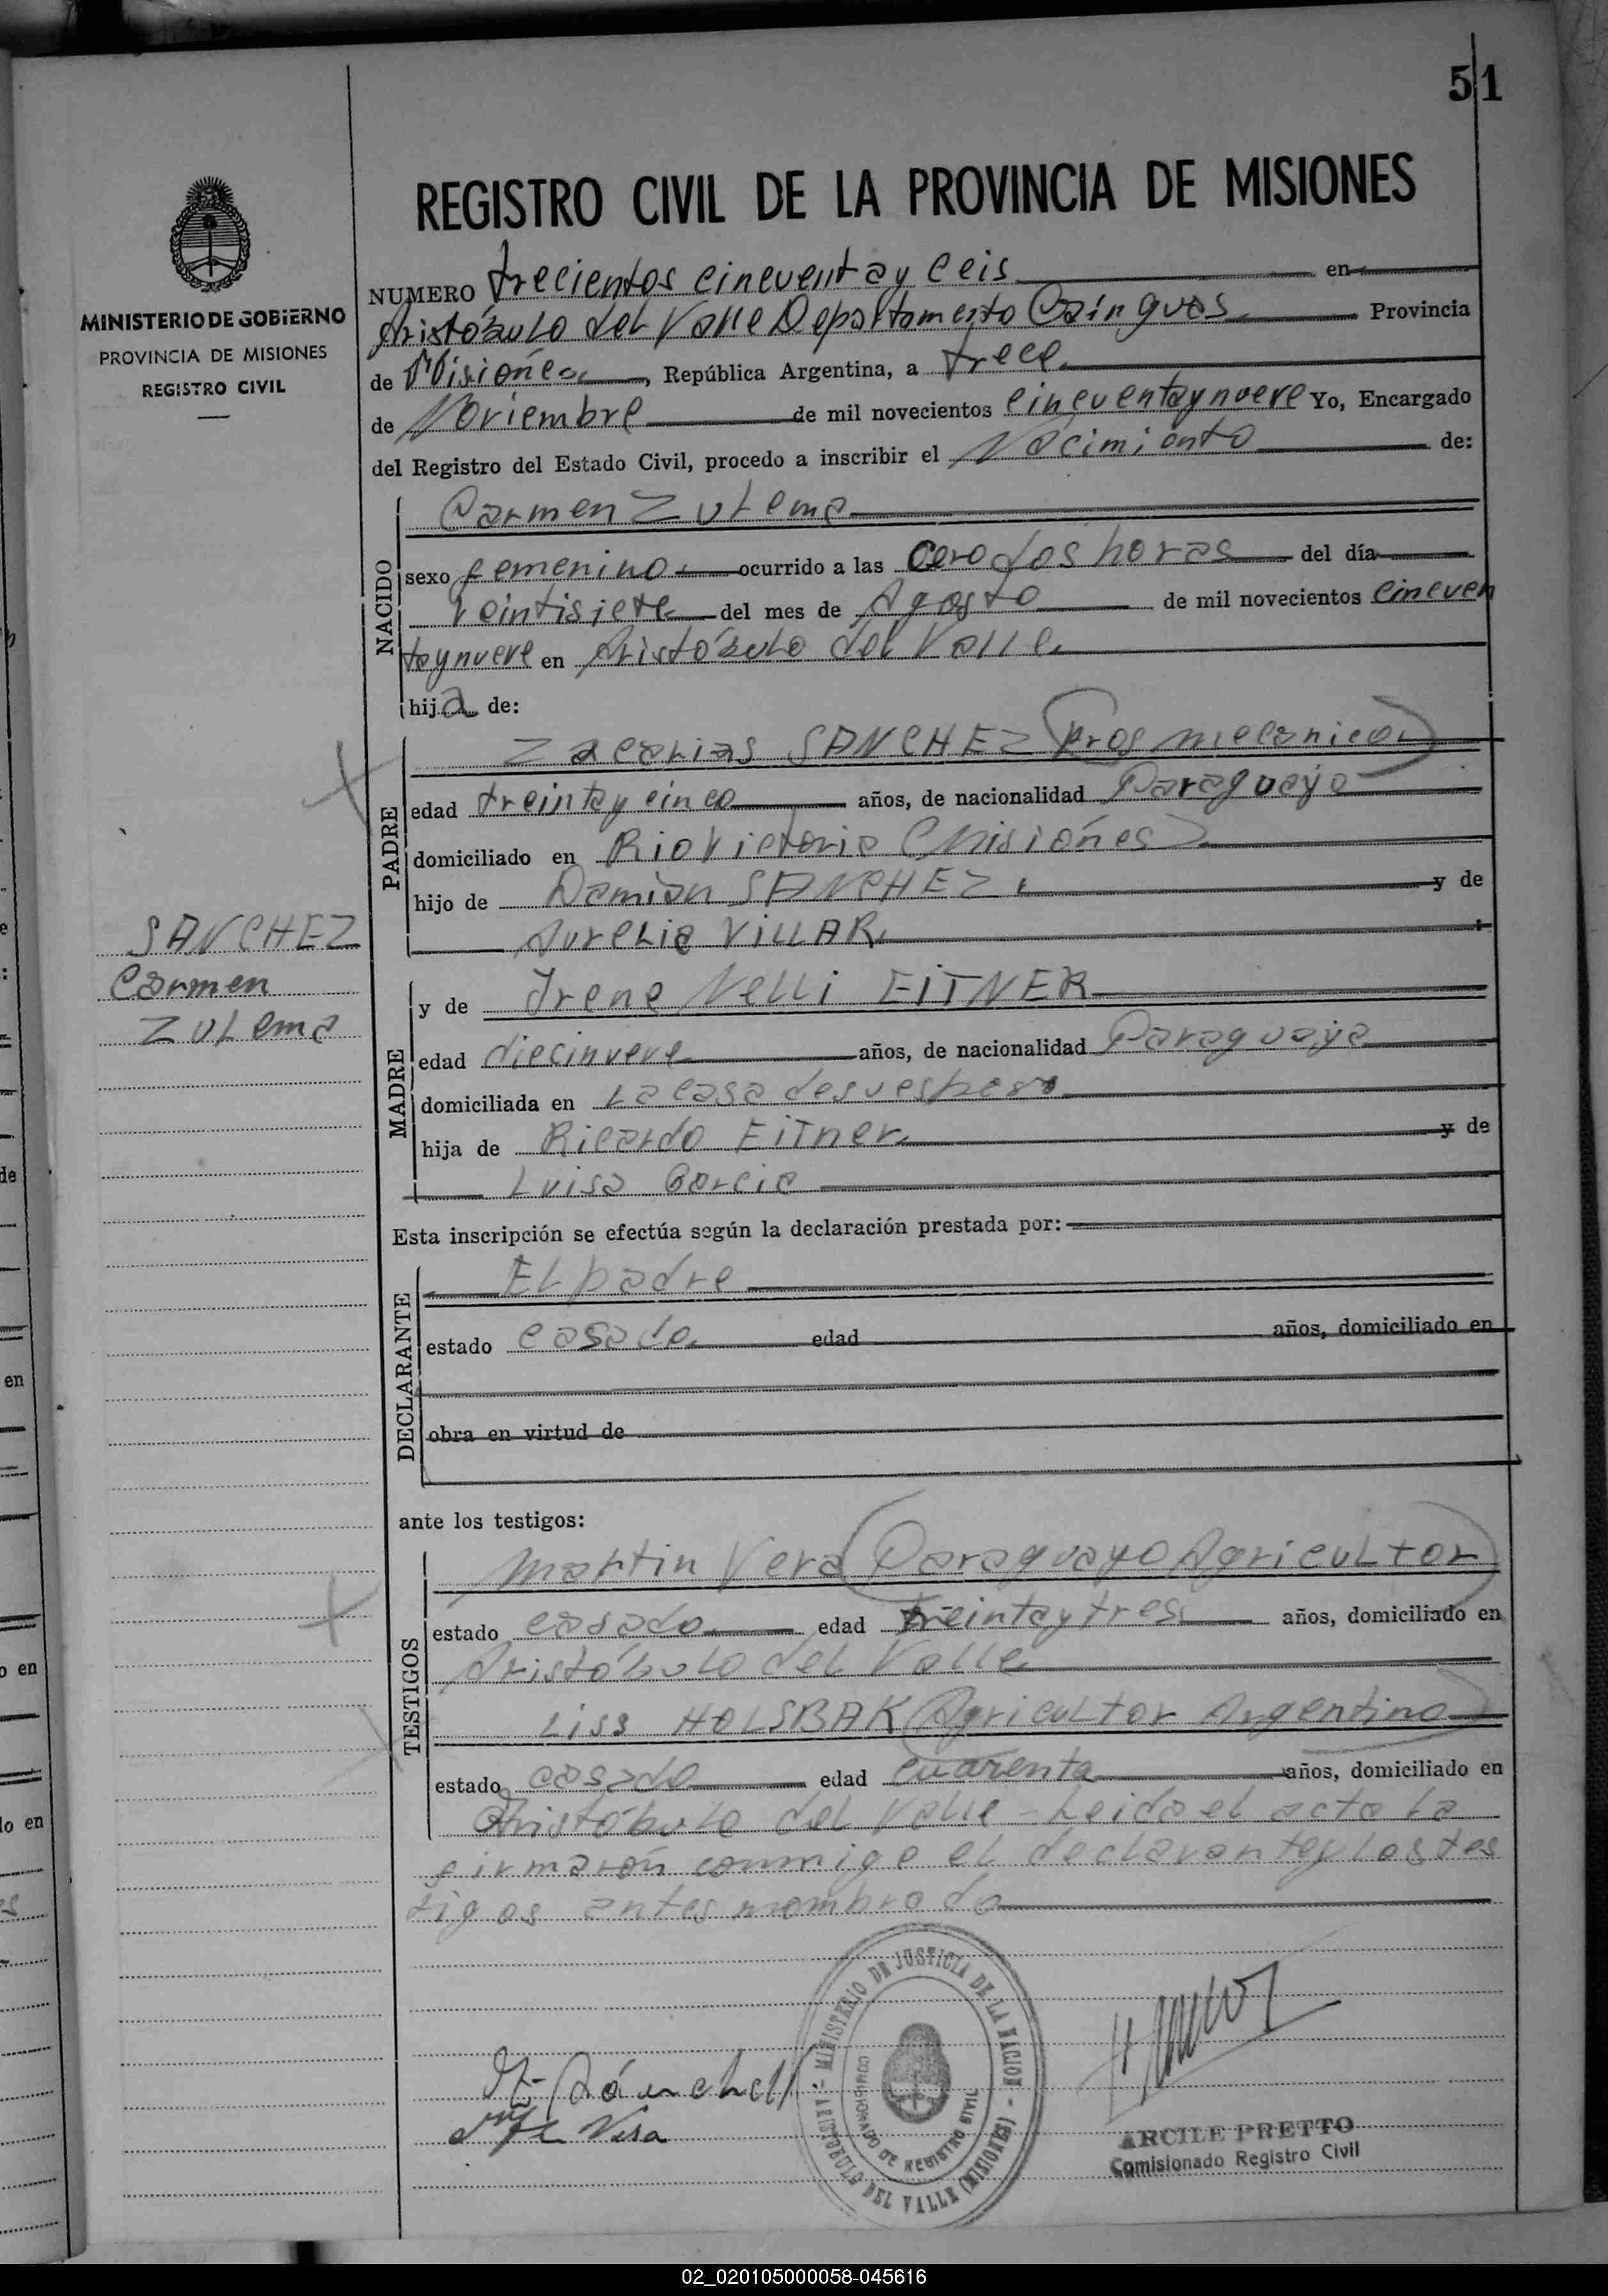 51
REGISTRO CIVIL DE LA PROVINCIA DE MISIONES
MINISTERIO DE GOBIERNO
PROVINCIA DE MISIONES
REGISTRO CIVIL
NUMERO trecientos cincuenta y ceis en
Aristóbulo del Valle Departamento Cainguas Provincia
de Misiónes, República Argentina, a trece
de Noviembre de mil novecientos cincuentaynueve Yo, Encargado
del Registro del Estado Civil, procedo a inscribir el Nacimiento de:
NACIDO
Carmen Zulema
sexo femenino ocurrido a las cero dos horas del día
veintisiete del mes de Agosto de mil novecientos cincuen
taynueve en Aristóbulo del Valle
hija de:
PADRE
Zacarias SANCHEZ (Prof mecanico)
edad treintaycinco años, de nacionalidad Paraguayo
domiciliado en Rio Victoria (Misiónes)
hijo de Damian SANCHEZ y de
Aurelia VILLAR
SANCHEZ
Carmen
Zulema
MADRE
y de Irene Nelli EITNER
edad diecinueve años, de nacionalidad Paraguaya
domiciliada en La casa de su esposo
hija de Ricardo EiTner y de
Luisa Garcia
Esta inscripción se efectúa según la declaración prestada por:
DECLARANTE
El padre
estado casado edad años, domiciliado en
obra en virtud de
ante los testigos:
TESTIGOS
Martin Vera (Paraguayo Agricultor)
estado casado edad treintaytres años, domiciliado en
Aristóbulo del Valle
Liss HOLSBAK (Agricultor Argentino)
estado casado edad cuarenta años, domiciliado en
Aristóbulo del Valle - Leida el acta la
firmarón conmigo el declarante y los tes
tigos antes nombrado
MINISTERIO DE JUSTICIA DE LA NACION
COMISIONADO DE REGISTRO CIVIL
ARISTOBULO DEL VALLE (MISIONES)
Sánchez
Vera
ARCILE PRETTO
Comisionado Registro Civil
02_020105000058-045616